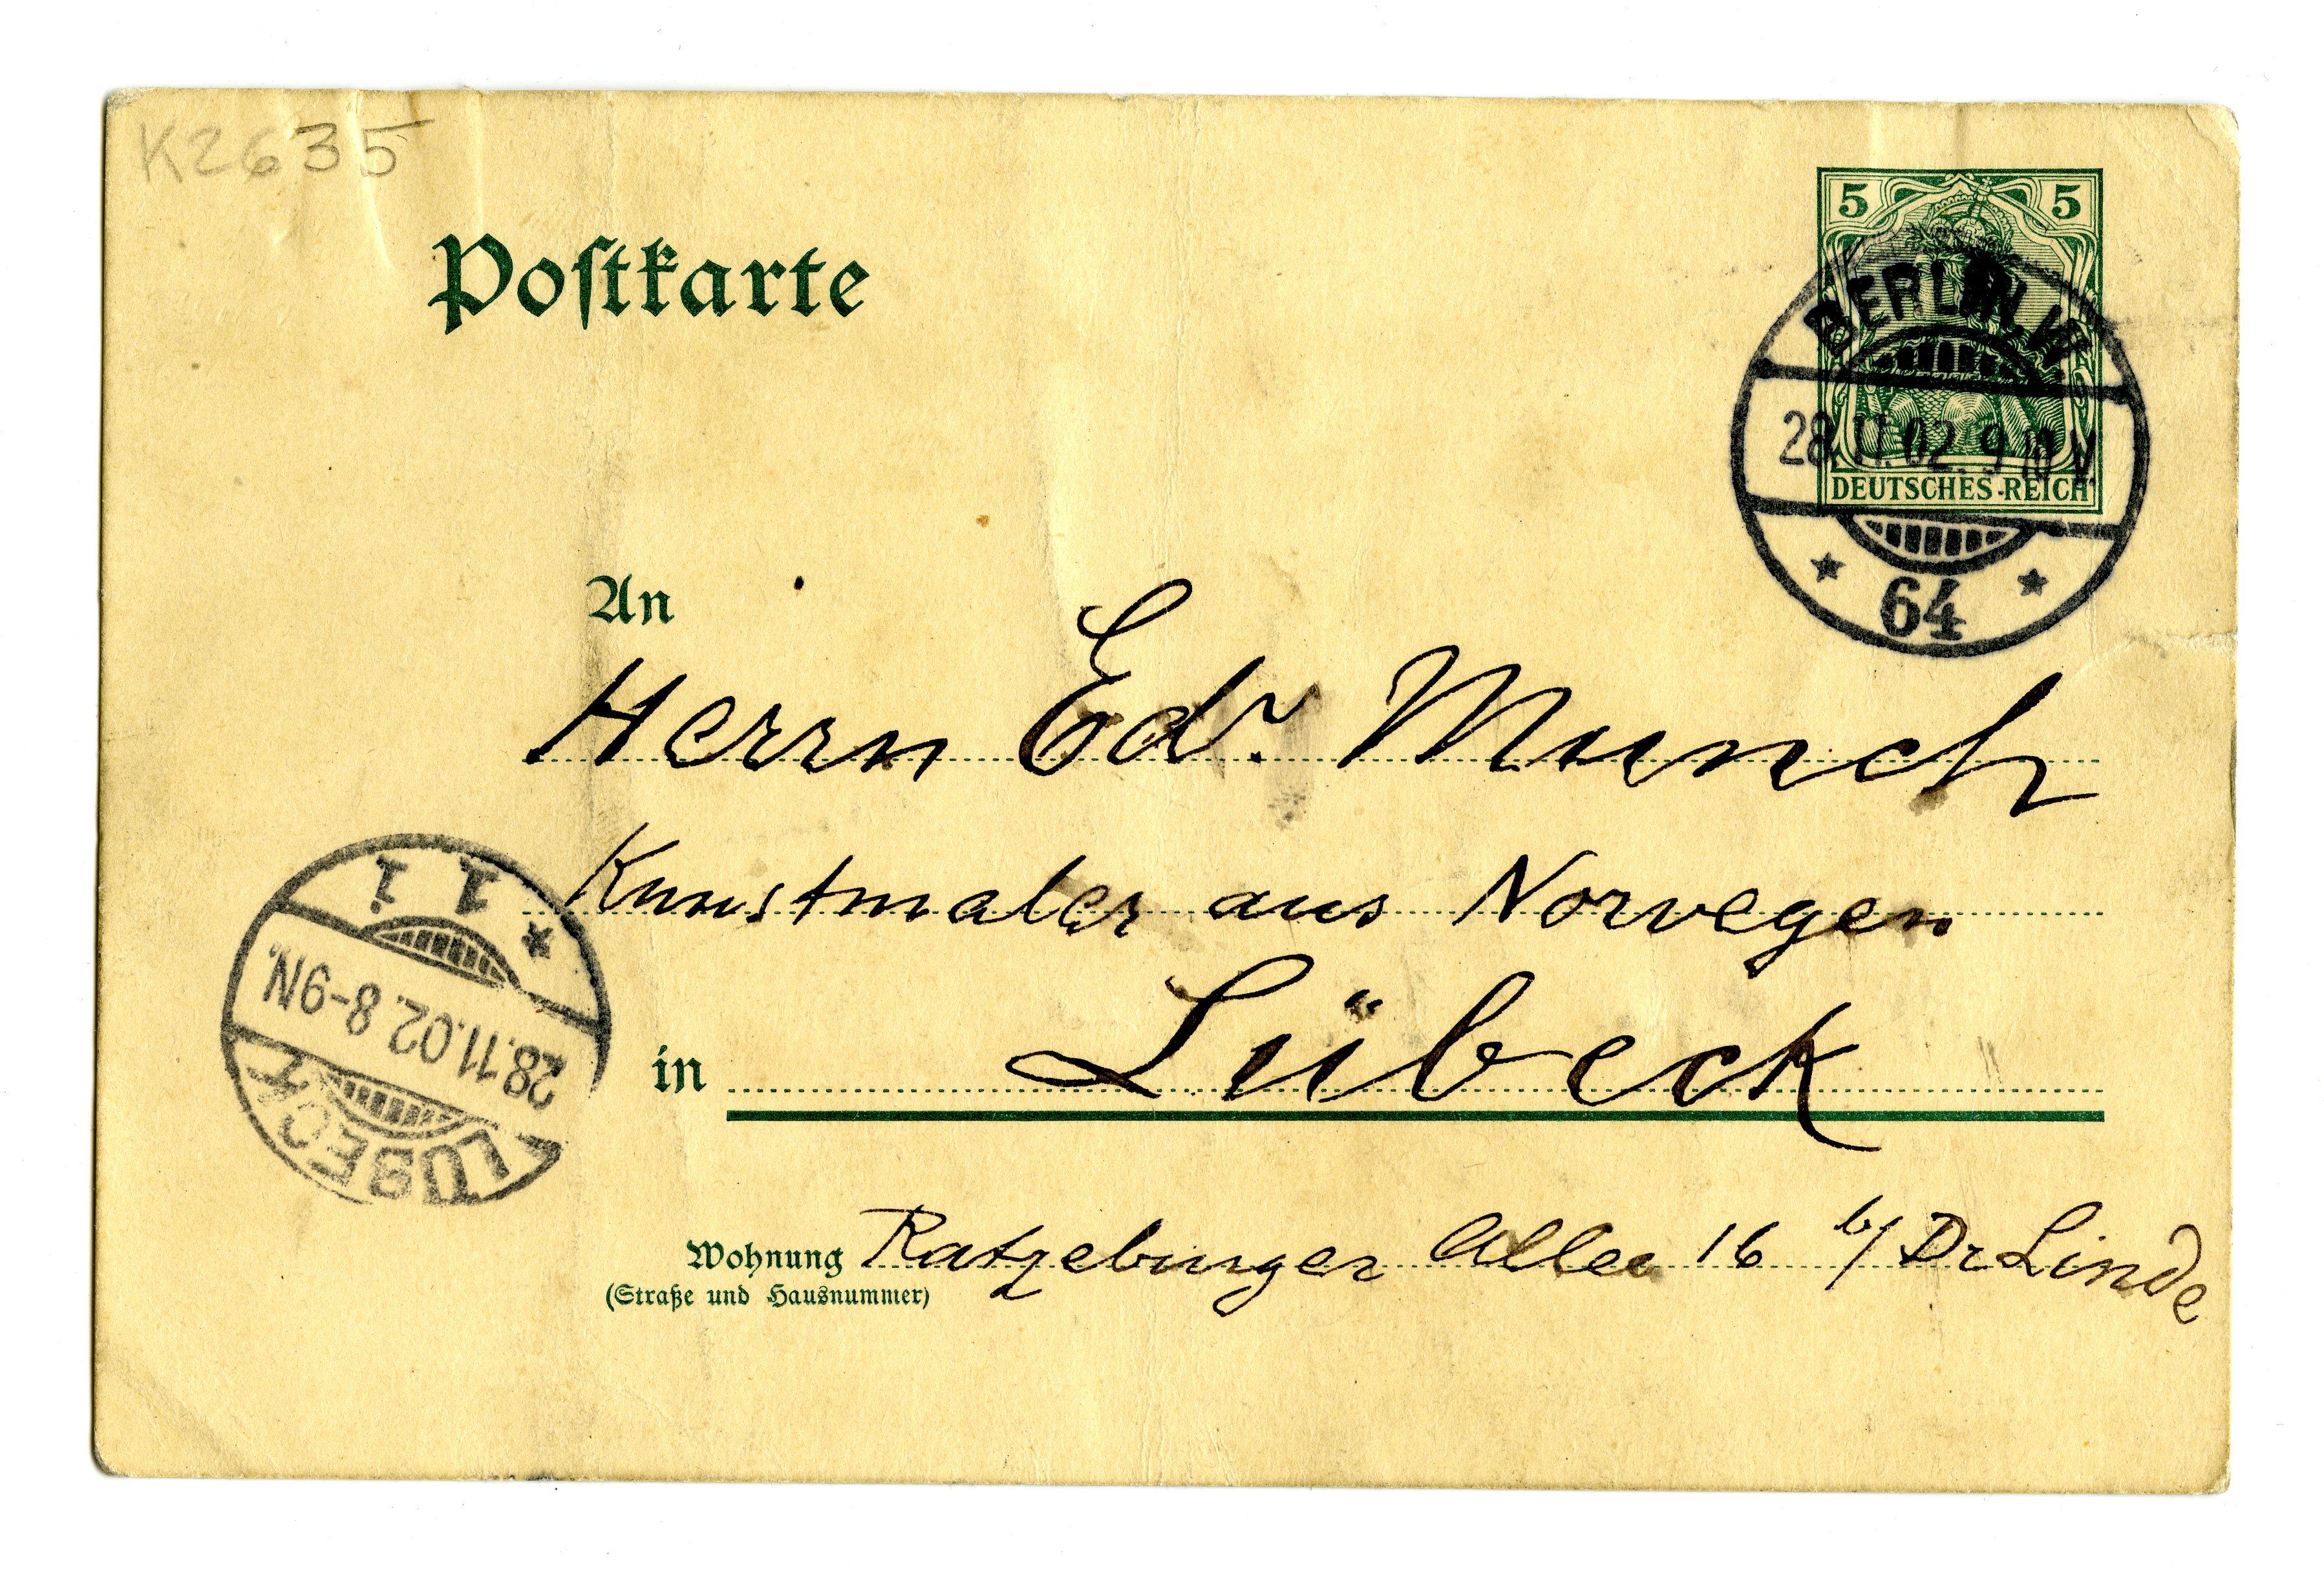 K2635
Postkarte
5 5
BERLIN. W
28.11.02. 9-10 V.
DEUTSCHES REICH
* 64 *
An
Herrn Edv. Munch
Kunstmaler aus Norwegen
in Lübeck
Wohnung Ratzeburger Allee 16 b/ Dr Linde
(Straße und Hausnummer)
LÜBECK
28.11.02. 8-9N.
* 1